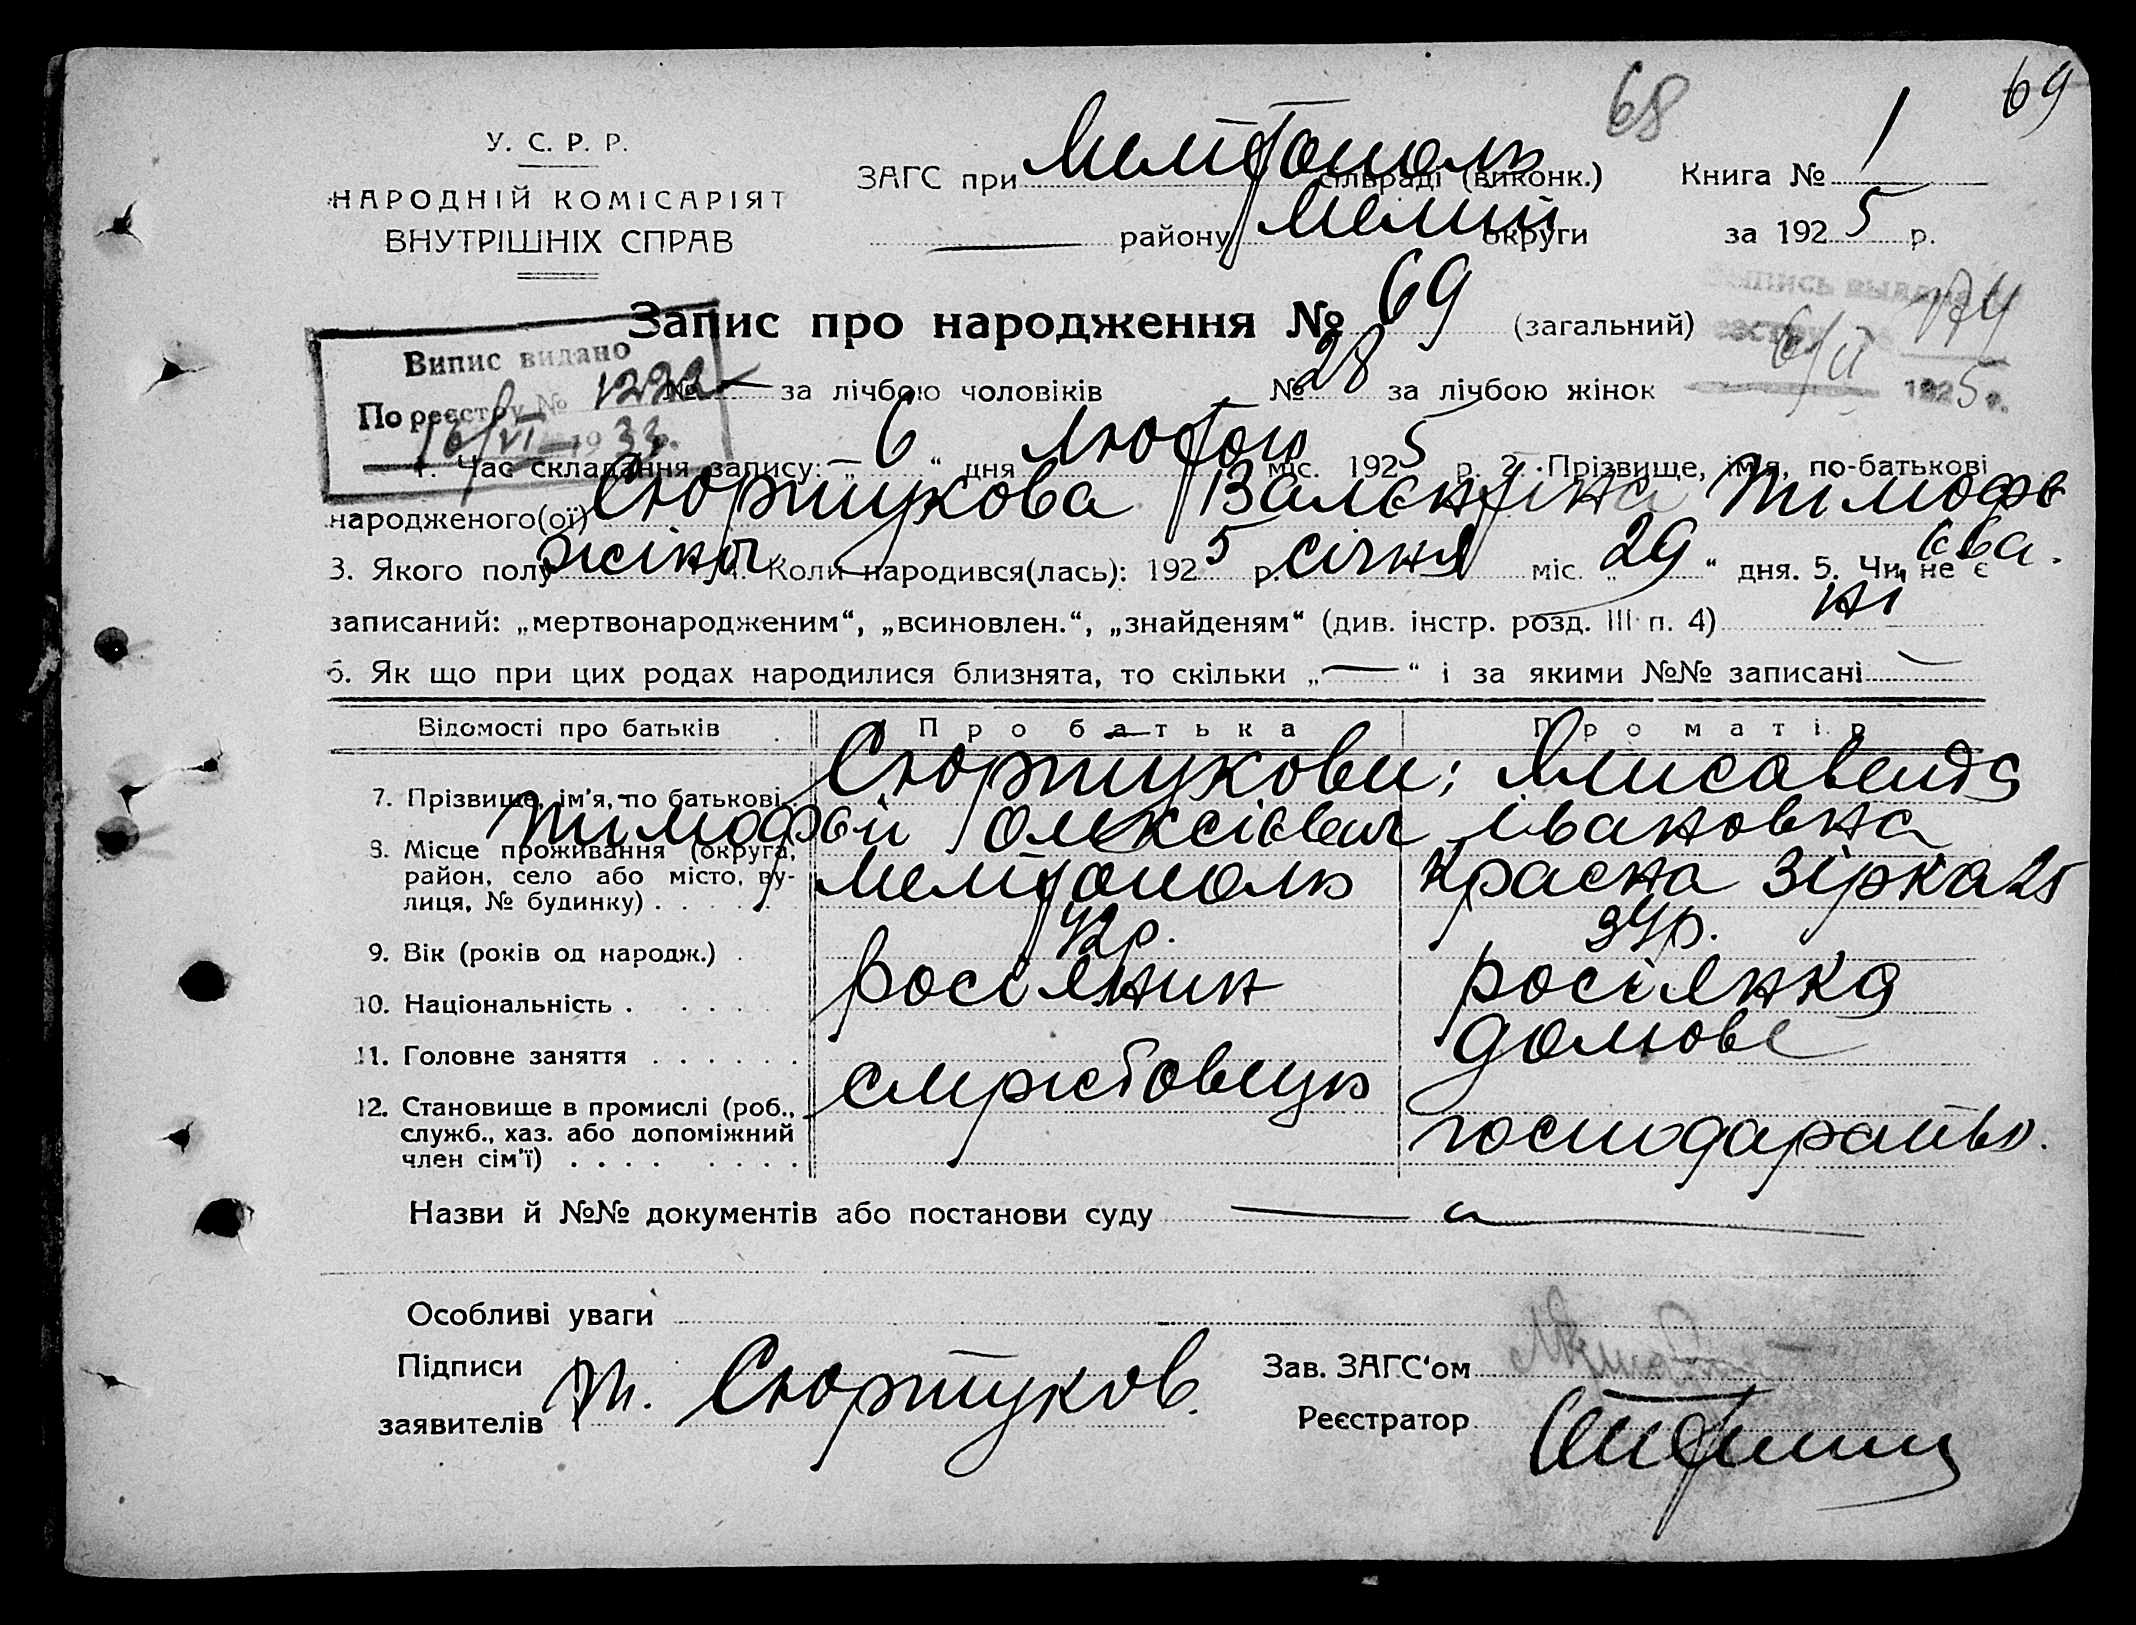 68
69
У. С. Р. Р.
НАРОДНІЙ КОМІСАРІЯТ
ВНУТРІШНІХ СПРАВ
ЗАГС при Мелітополь сільраді (виконк.) Книга № 1
— району Меліт округи за 1925 р.
Запис про народження № 69 (загальний)
Випис видано
По реєстру № 1222
16/VI 1933.
Выпись выдана
174
6/II 1925 г.
№ — за лічбою чоловіків № 28 за лічбою жінок
1. Час складання запису: „6“ дня Лютого міс. 1925 р. 2. Прізвище, ім'я, по-батькові
народженого(ої) Сюртукова Валентина Тимофеєва.
3. Якого полу жіноч 4. Коли народився(лась): 1925 р. січня міс. „29“ дня. 5. Чи не є
записаний: „мертвонародженим“, „всиновлен.“, „знайденям“ (див. інстр. розд. III п. 4) ні
6. Як що при цих родах народилися близнята, то скільки „—“ і за якими №№ записані —
Відомості про батьків Про батька Про матір
7. Прізвище, ім'я, по батькові. Сюртукови; Єлисавета
Тимофей Олексієвич Івановна
8. Місце проживання (округа,
район, село або місто, ву-
лиця, № будинку) . . . . Мелітополь Красна Зірка 25
9. Вік (років од народж.) . 42 р. 34 р.
10. Національність . . . . . росіянин росіянка
11. Головне заняття . . . . . . домове
12. Становище в промислі (роб.,
служб., хаз. або допоміжний
член сім'ї) . . . . . . . . господарство.
Назви й №№ документів або постанови суду —
Особливі уваги
Підписи
заявителів Т. Сюртуков.
Зав. ЗАГС'ом
Реєстратор